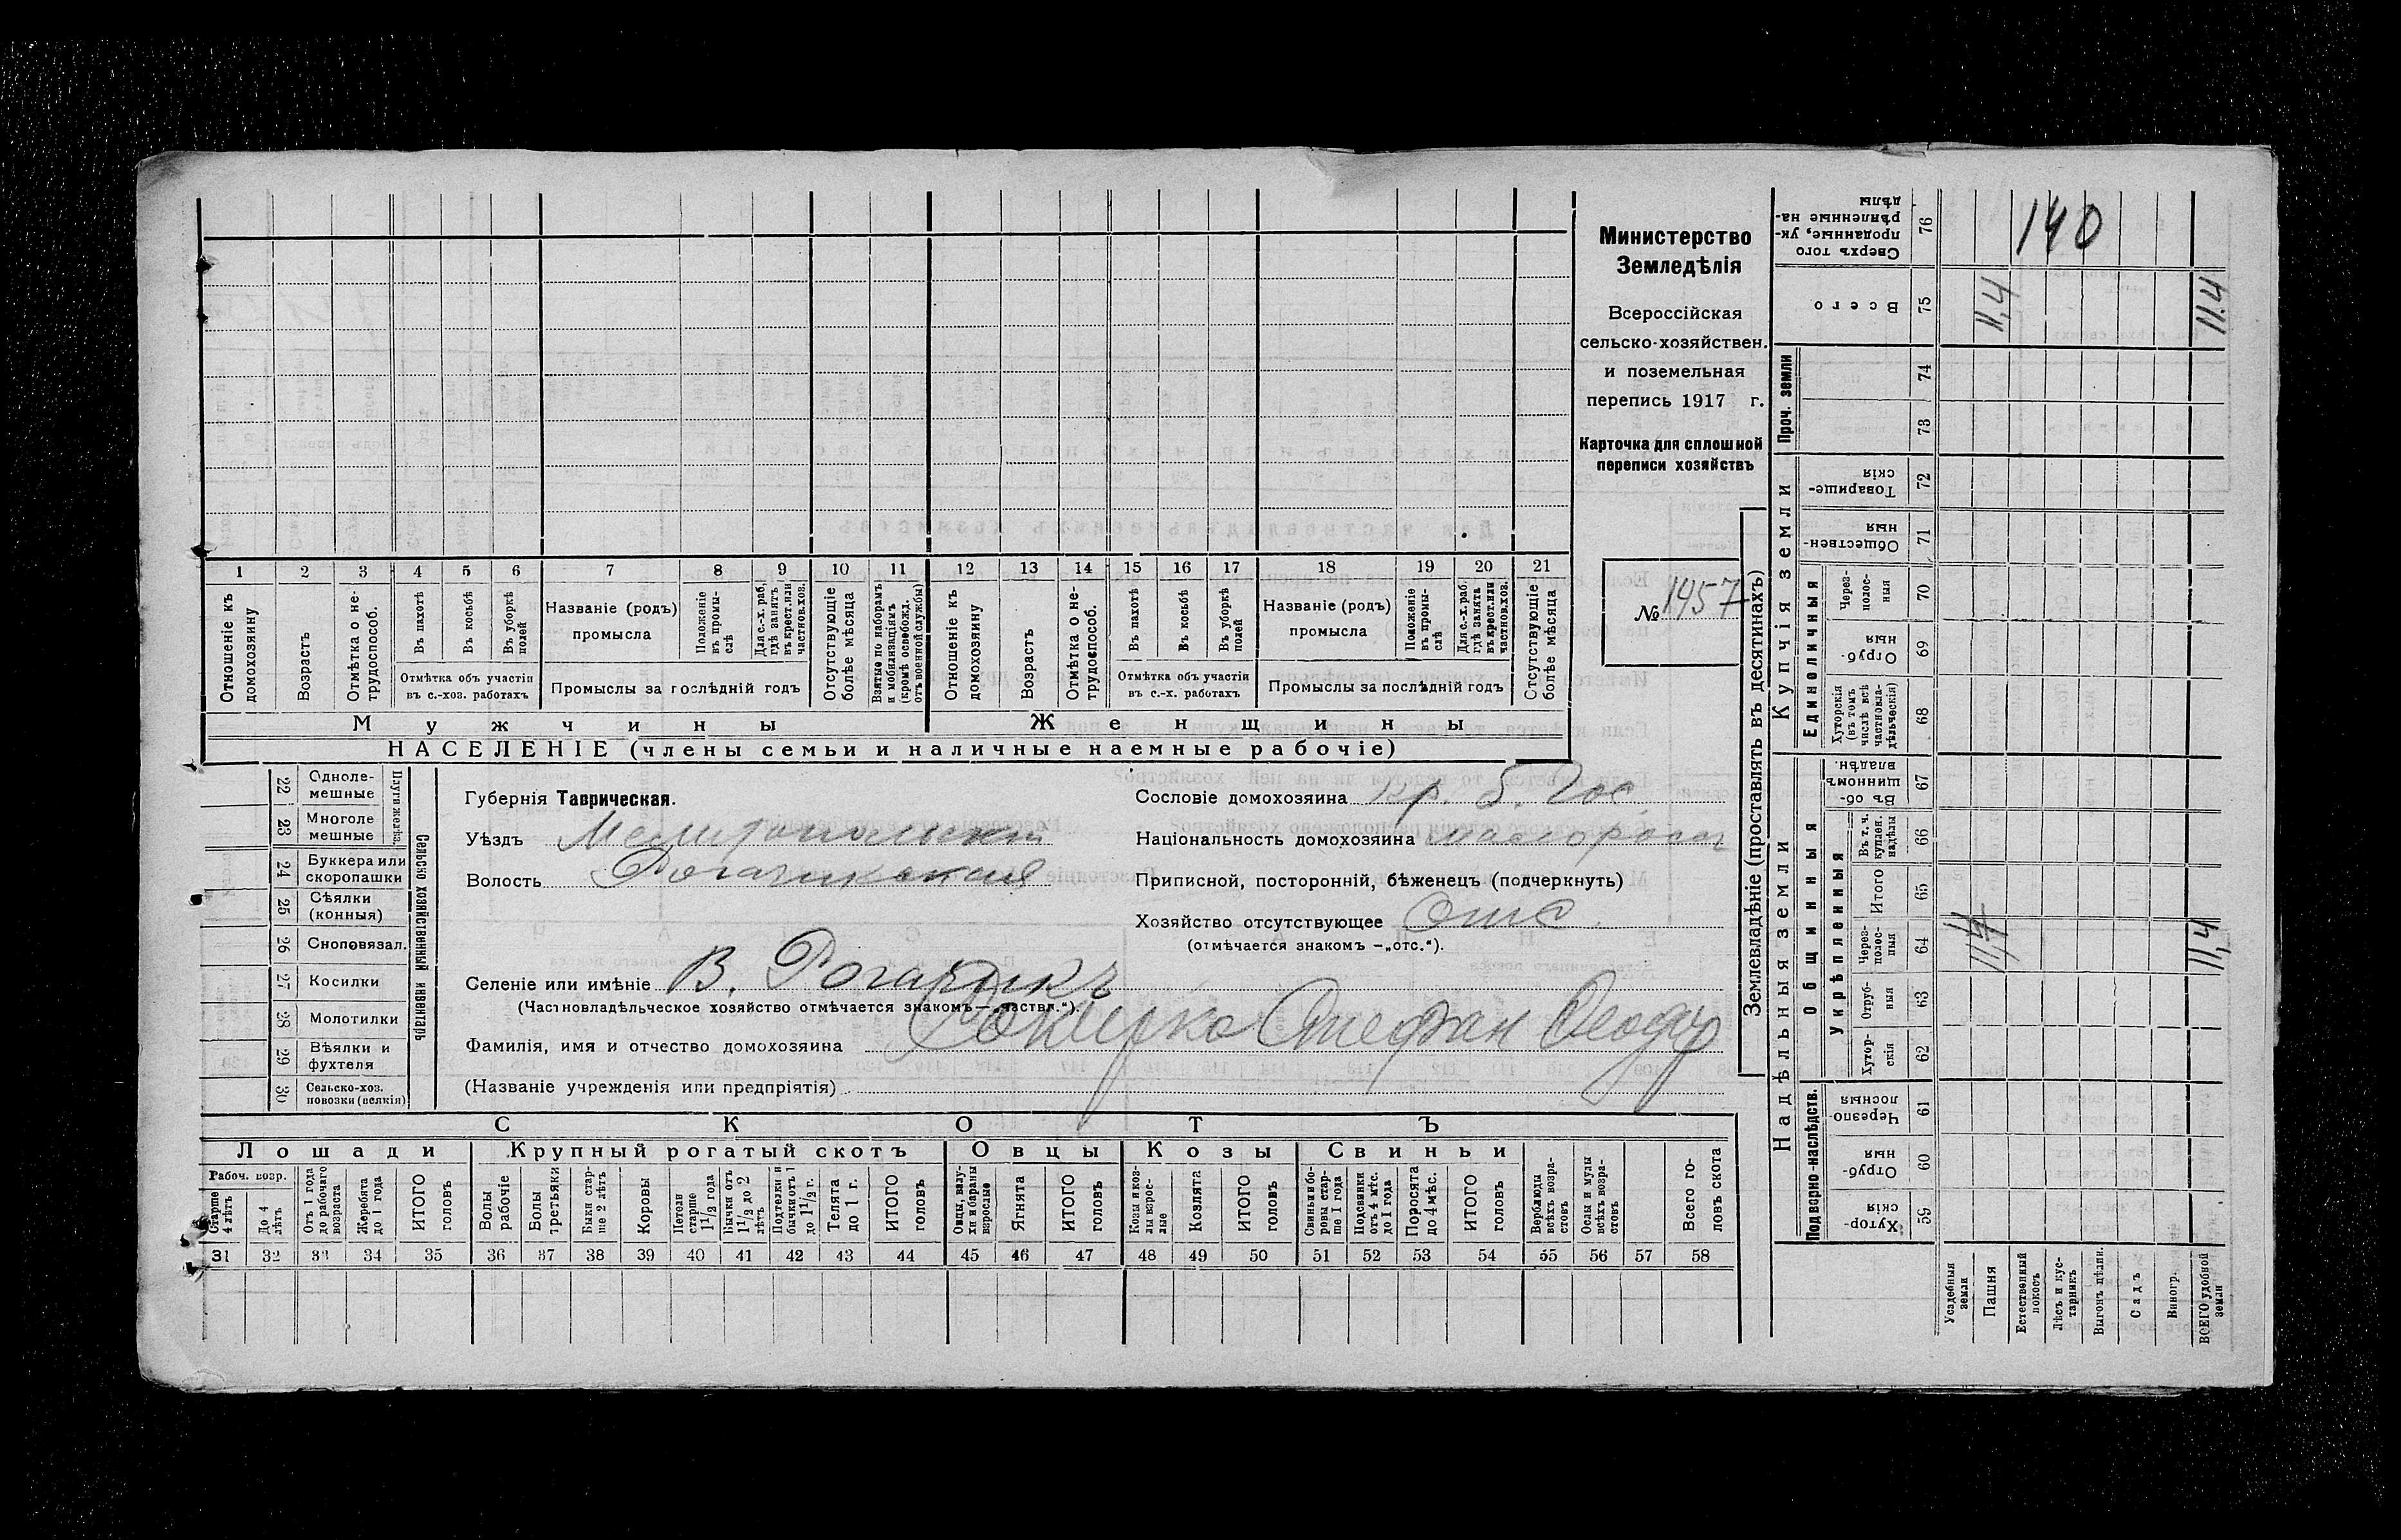 Министерство
Земледѣлія
Всероссійская
сельско-хозяйствен.
и поземельная
перепись 1917 г.
Карточка для сплошной
переписи хозяйствъ
№ 1457
1 2 3 4 5 6 7 8 9 10 11 12 13 14 15 16 17 18 19 20 21
Отношеніе къ домохозяину
Возрастъ
Отмѣтка о не-трудоспособ.
Въ пахотѣ
Въ косьбѣ
Въ уборкѣ полей
Отмѣтка объ участіи
въ с.-хоз. работахъ
Названіе (родъ)
промысла
Положеніе въ промы-слѣ
Для с.-х. раб. гдѣ занятъ въ крест. или частнов. хоз.
Промыслы за послѣдній годъ
Отсутствующіе болѣе мѣсяца
Взятые по наборамъ и мобилизаціямъ (кромѣ освобожд. отъ военной службы)
Отношеніе къ домохозяину
Возрастъ
Отмѣтка о не-трудоспособ.
Въ пахотѣ
Въ косьбѣ
Въ уборкѣ полей
Отмѣтка объ участіи
въ с.-х. работахъ
Названіе (родъ)
промысла
Положеніе въ промы-слѣ
Для с.-х. раб. гдѣ занята въ крест. или частнов. хоз.
Промыслы за послѣдній годъ
Отсутствующіе болѣе мѣсяца
Мужчины
Женщины
НАСЕЛЕНІЕ (члены семьи и наличные наемные рабочіе)
22 Одноле-мешные
23 Многоле мешные
Плуги желѣз.
24 Буккера или скоропашки
25 Сѣялки (конныя)
26 Сноповязал.
27 Косилки
28 Молотилки
29 Вѣялки и фухтеля
30 Сельско-хоз. повозки (всякія)
Сельско хозяйственный инвентарь
Губернія Таврическая.
Уѣздъ Мелитопольскій
Волость Рогачикская
Селеніе или имѣніе В. Рогачикъ
(Частновладѣльческое хозяйство отмѣчается знакомъ—„частвл.“).
Фамилія, имя и отчество домохозяина Стефан Федор
(Названіе учрежденія или предпріятія)
Сословіе домохозяина кр. б. Гос.
Національность домохозяина малоросс
Приписной, посторонній, бѣженецъ (подчеркнуть)
Хозяйство отсутствующее Отс.
(отмѣчается знакомъ —„отс.“).
СКОТЪ
Лошади
Крупный рогатый скотъ
Овцы
Козы
Свиньи
Рабоч. возр.
Старше 4 лѣтъ
До 4 лѣтъ
Отъ 1 года до рабочаго возраста
Жеребята до 1 года
ИТОГО головъ
Волы рабочіе
Волы третьяки
Быки стар-ше 2 лѣтъ
Коровы
Нетели старше 1 1/2 года
Бычки отъ 1 1/2 до 2 лѣтъ
Подтелки и бычки отъ 1 до 1 1/2 г.
Телята до 1 г.
ИТОГО головъ
Овцы, валу-хи и бараны взрослые
Ягнята
ИТОГО головъ
Козы и коз-лы взрос-лые
Козлята
ИТОГО головъ
Свиньи и бо-ровы стар-ше 1 года
Подсвинки отъ 4 мѣс. до 1 года
Поросята до 4 мѣс.
ИТОГО головъ
Верблюды всѣхъ возра-стовъ
Ослы и мулы всѣхъ возра-стовъ
Всего го-ловъ скота
31 32 33 34 35 36 37 38 39 40 41 42 43 44 45 46 47 48 49 50 51 52 53 54 55 56 57 58
Землевладѣніе (проставлять въ десятинахъ)
Надѣльныя земли
Купчія земли
Проч. земли
Подворно-наслѣдств.
Общинныя
Укрѣпленныя
Единоличныя
Сверхъ того проданные, ук-рѣпленные на-дѣлы 76
140
Всего 75
11,4
11,4
74
73
Товарище-скія 72
Обществен-ныя 71
Через-полос-ныя 70
Отруб-ныя 69
Хуторскія (въ томъ числѣ всѣ частновла-дѣльческія) 68
Въ об-щинномъ владѣн. 67
Въ т. ч. куплен. надѣлы 66
Итого 65
Через-полос-ныя 64
11,4
Отруб-ныя 63
Хутор-скія 62
Черезпо-лосныя 61
Отруб-ныя 60
Хутор-скія 59
Усадебныя земли
Пашня
Естественный покосъ
Лѣсъ и кус-тарникъ
Выгонъ цѣлин.
Садъ
Виногр.
ВСЕГО удобной земли